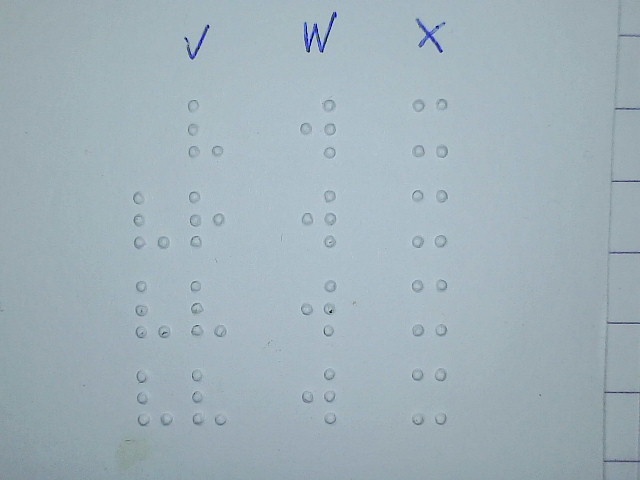 V W X
⠧ ⠺ ⠭
⠧⠗ ⠺ ⠭
⠧⠧ ⠺ ⠭
⠧⠧ ⠺ ⠭